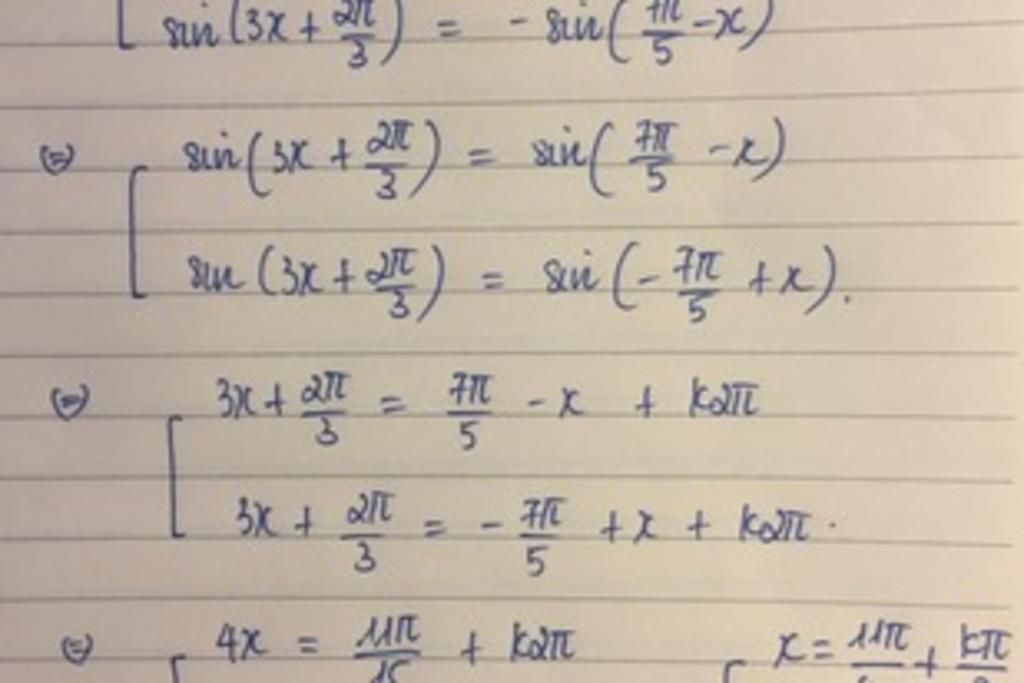 [ sin(3x + 2π/3) = - sin(7π/5 - x)
(=) [ sin(3x + 2π/3) = sin(7π/5 - x)
sin(3x + 2π/3) = sin(-7π/5 + x).
(=) [ 3x + 2π/3 = 7π/5 - x + k2π
3x + 2π/3 = -7π/5 + x + k2π.
(=) [ 4x = 11π/15 + k2π [ x = 11π/ + kπ/